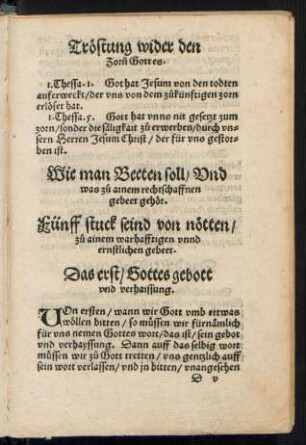 Tröstung wider den
Zorn Gottes.
1. Thessa. 1. Got hat Jesum von den todten
auferweckt/der vns von dem zůkünftigen zorn
erlöset hat.
1. Thessa. 5. Gott hat vnns nit gesetzt zum
zorn/sonder die säligkait zů erwerben/durch vn-
sern Herren Jesum Christ/der für vns gestor-
ben ist.
Wie man Betten soll/Vnd
was zů ainem rechtschaffnen
gebeet gehört.
Fünff stuck seind von nötten/
zů ainem warhafftigen vnnd
ernstlichen gebeet.
Das erst/Gottes gebott
vnd verhaissung.
VOn ersten/wann wir Gott vmb ettwas
wöllen bitten/so müssen wir fürnämlich
für vns nemen Gottes wort/das ist/sein gebot
vnd verhayssung. Dann auff das selbig wort
müssen wir zů Gott tretten/vns gentzlich auff
sein wort verlassen/vnd jn bitten/vnangesehen
D v